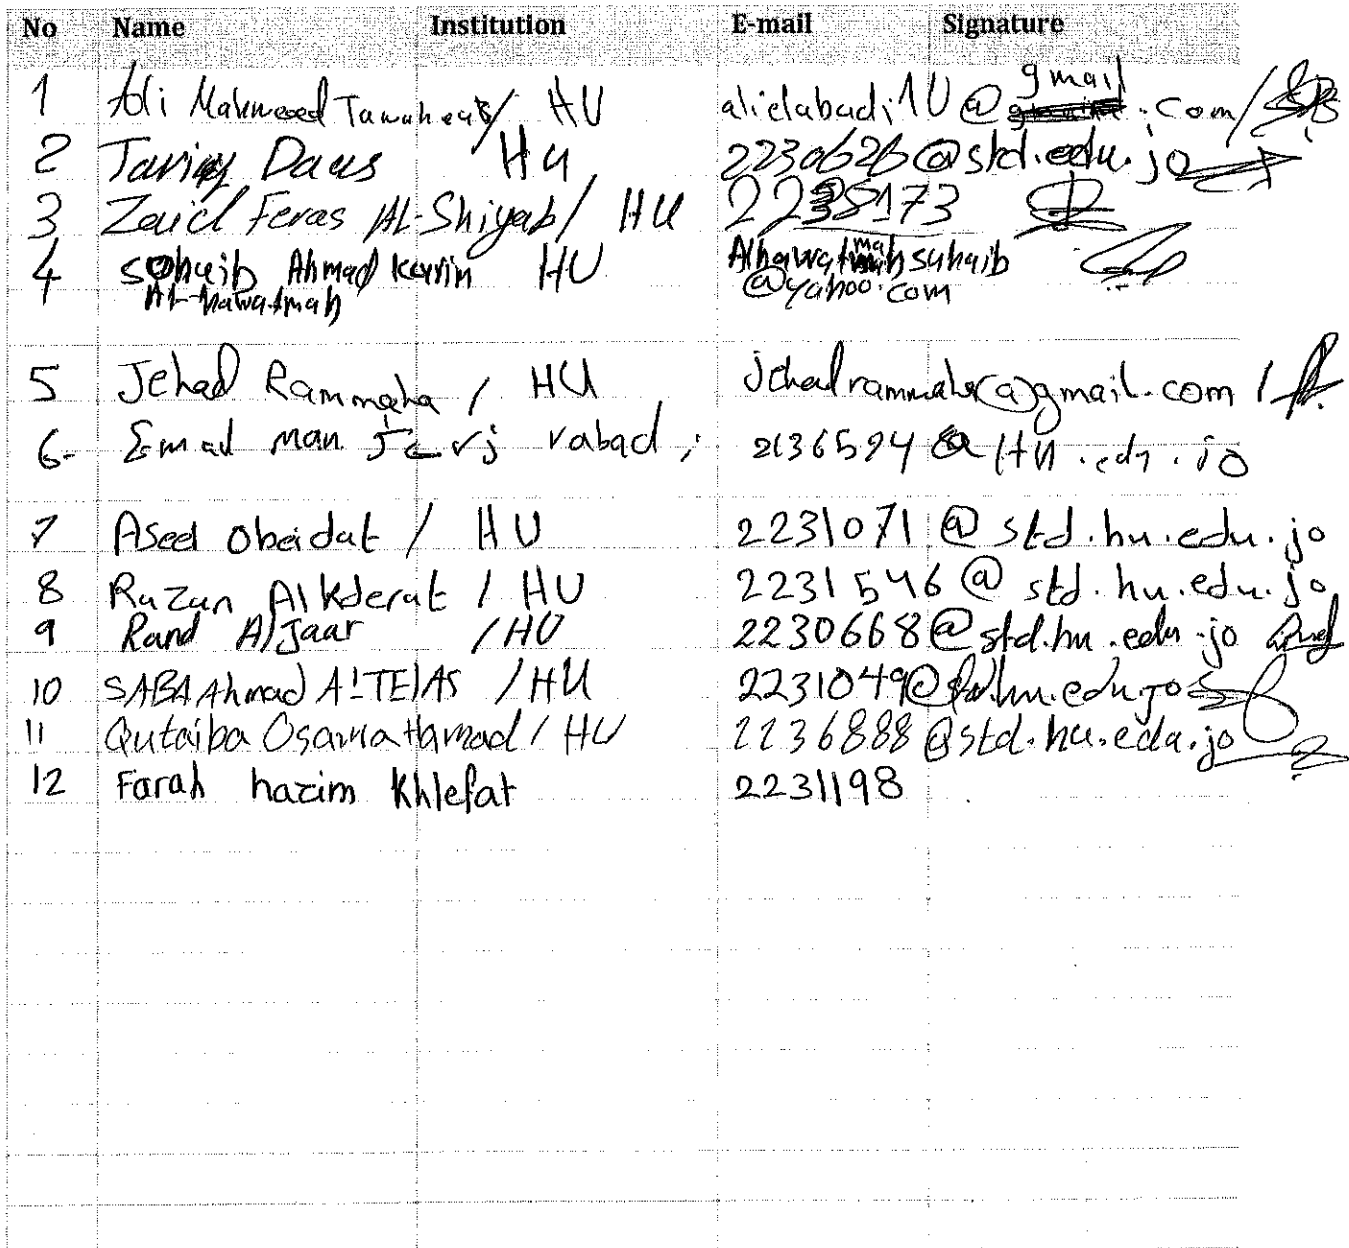 No Name Institution E-mail Signature
1 Ali Mahmood / HU @gmail.com /
2 Daus HU 2230626@std.edu.jo
3 Zaid Feras AL-Shiyab / HU 2238173
4 Sohaib Ahmad Karin HU Alhawatmahsuhaib
AL-hawatmah @yahoo.com
5 Jehad Rammaha / HU jehadrammaha@gmail.com /
6- Emad 2136594@HU.edu.jo
7 Aseel Obeidat / HU 2231071@std.hu.edu.jo
8 Razan AlKderat / HU 2231546@std.hu.edu.jo
9 Rand AlJaar / HU 2230668@std.hu.edu.jo
10 SABA Ahmad / HU 2231049@std.hu.edu.jo
11 Qutaiba Osama Hamad / HU 2236888@std.hu.edu.jo
12 Farah hazim Khlefat 2231198